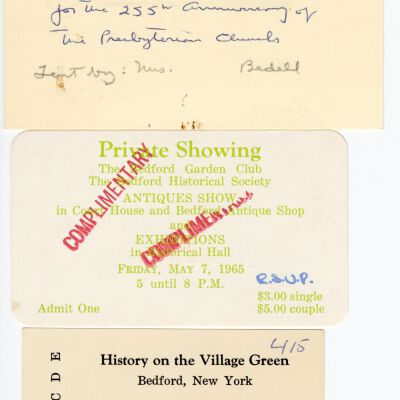 for the 255th Anniversary of
The Presbyterian Church
Lent by: Mrs. Bedell
Private Showing
The Bedford Garden Club
The Bedford Historical Society
ANTIQUES SHOW
in Court House and Bedford Antique Shop
and
EXHIBITIONS
in Historical Hall
FRIDAY, MAY 7, 1965
5 until 8 P.M.
COMPLIMENTARY
COMPLIMENTARY
R.S.V.P.
$3.00 single
Admit One $5.00 couple
415
History on the Village Green
Bedford, New York
C D E